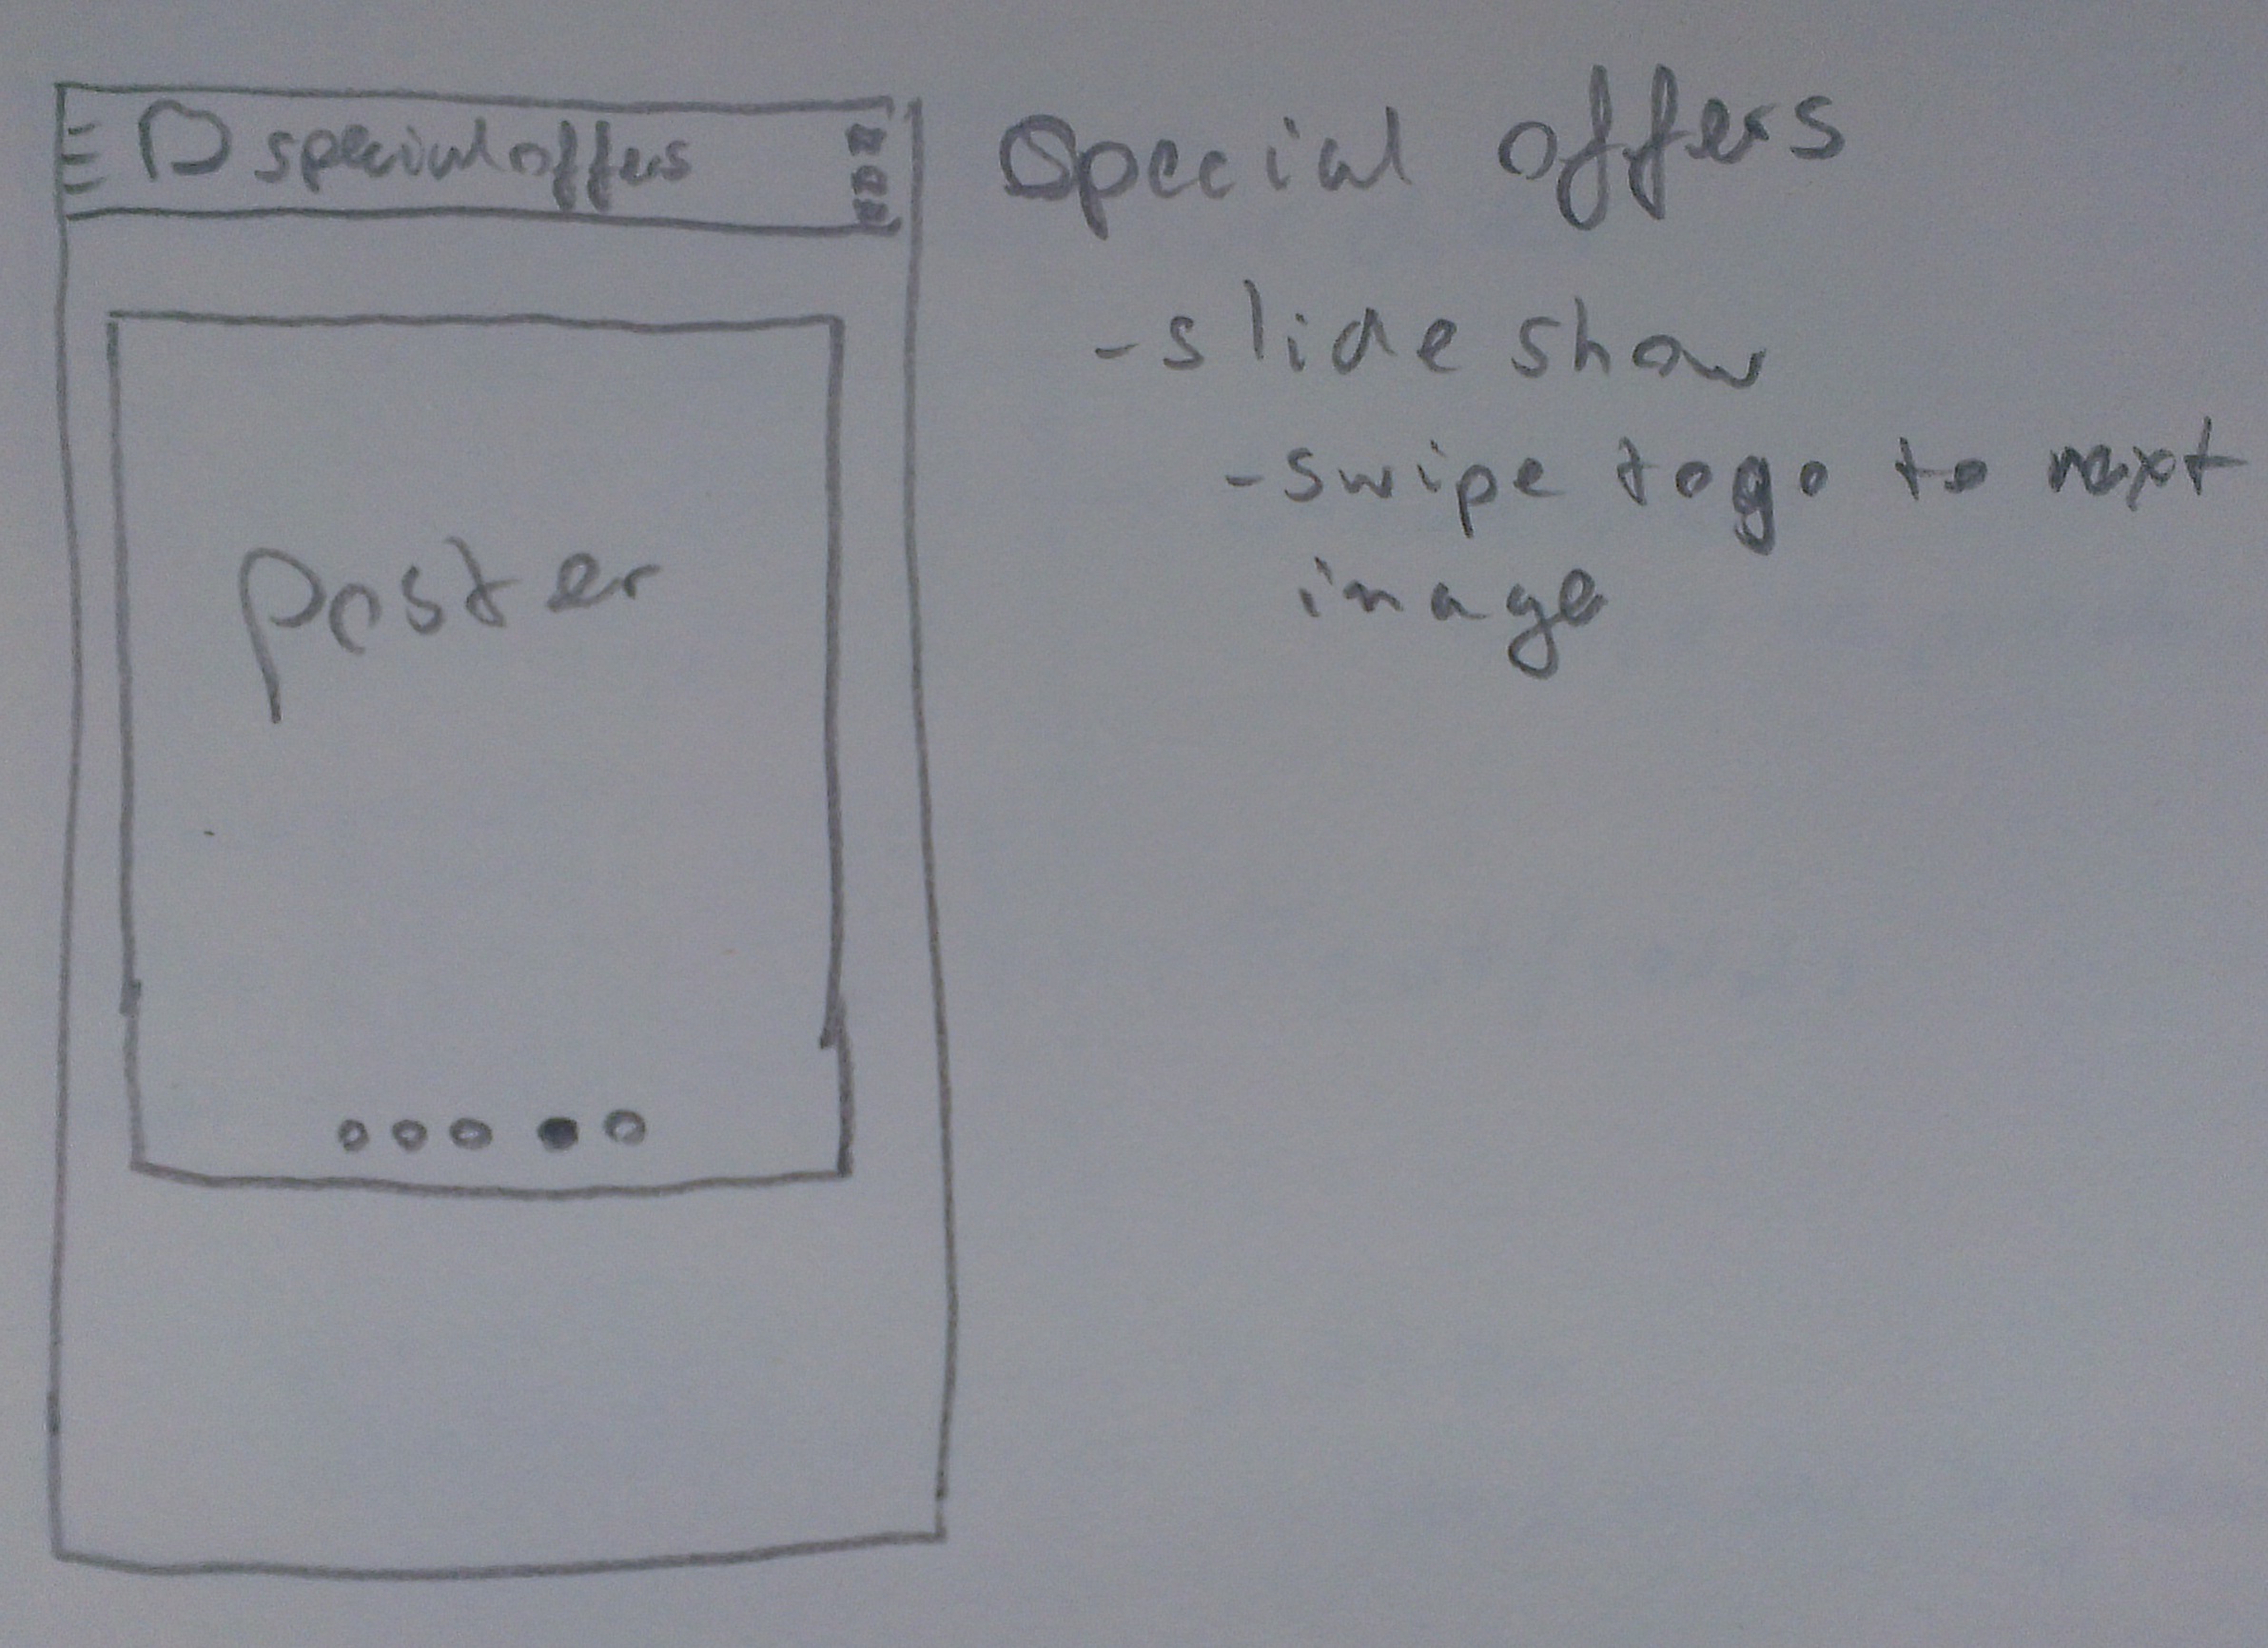 special offers
poster
Special offers
- slide show
- swipe to go to next
image